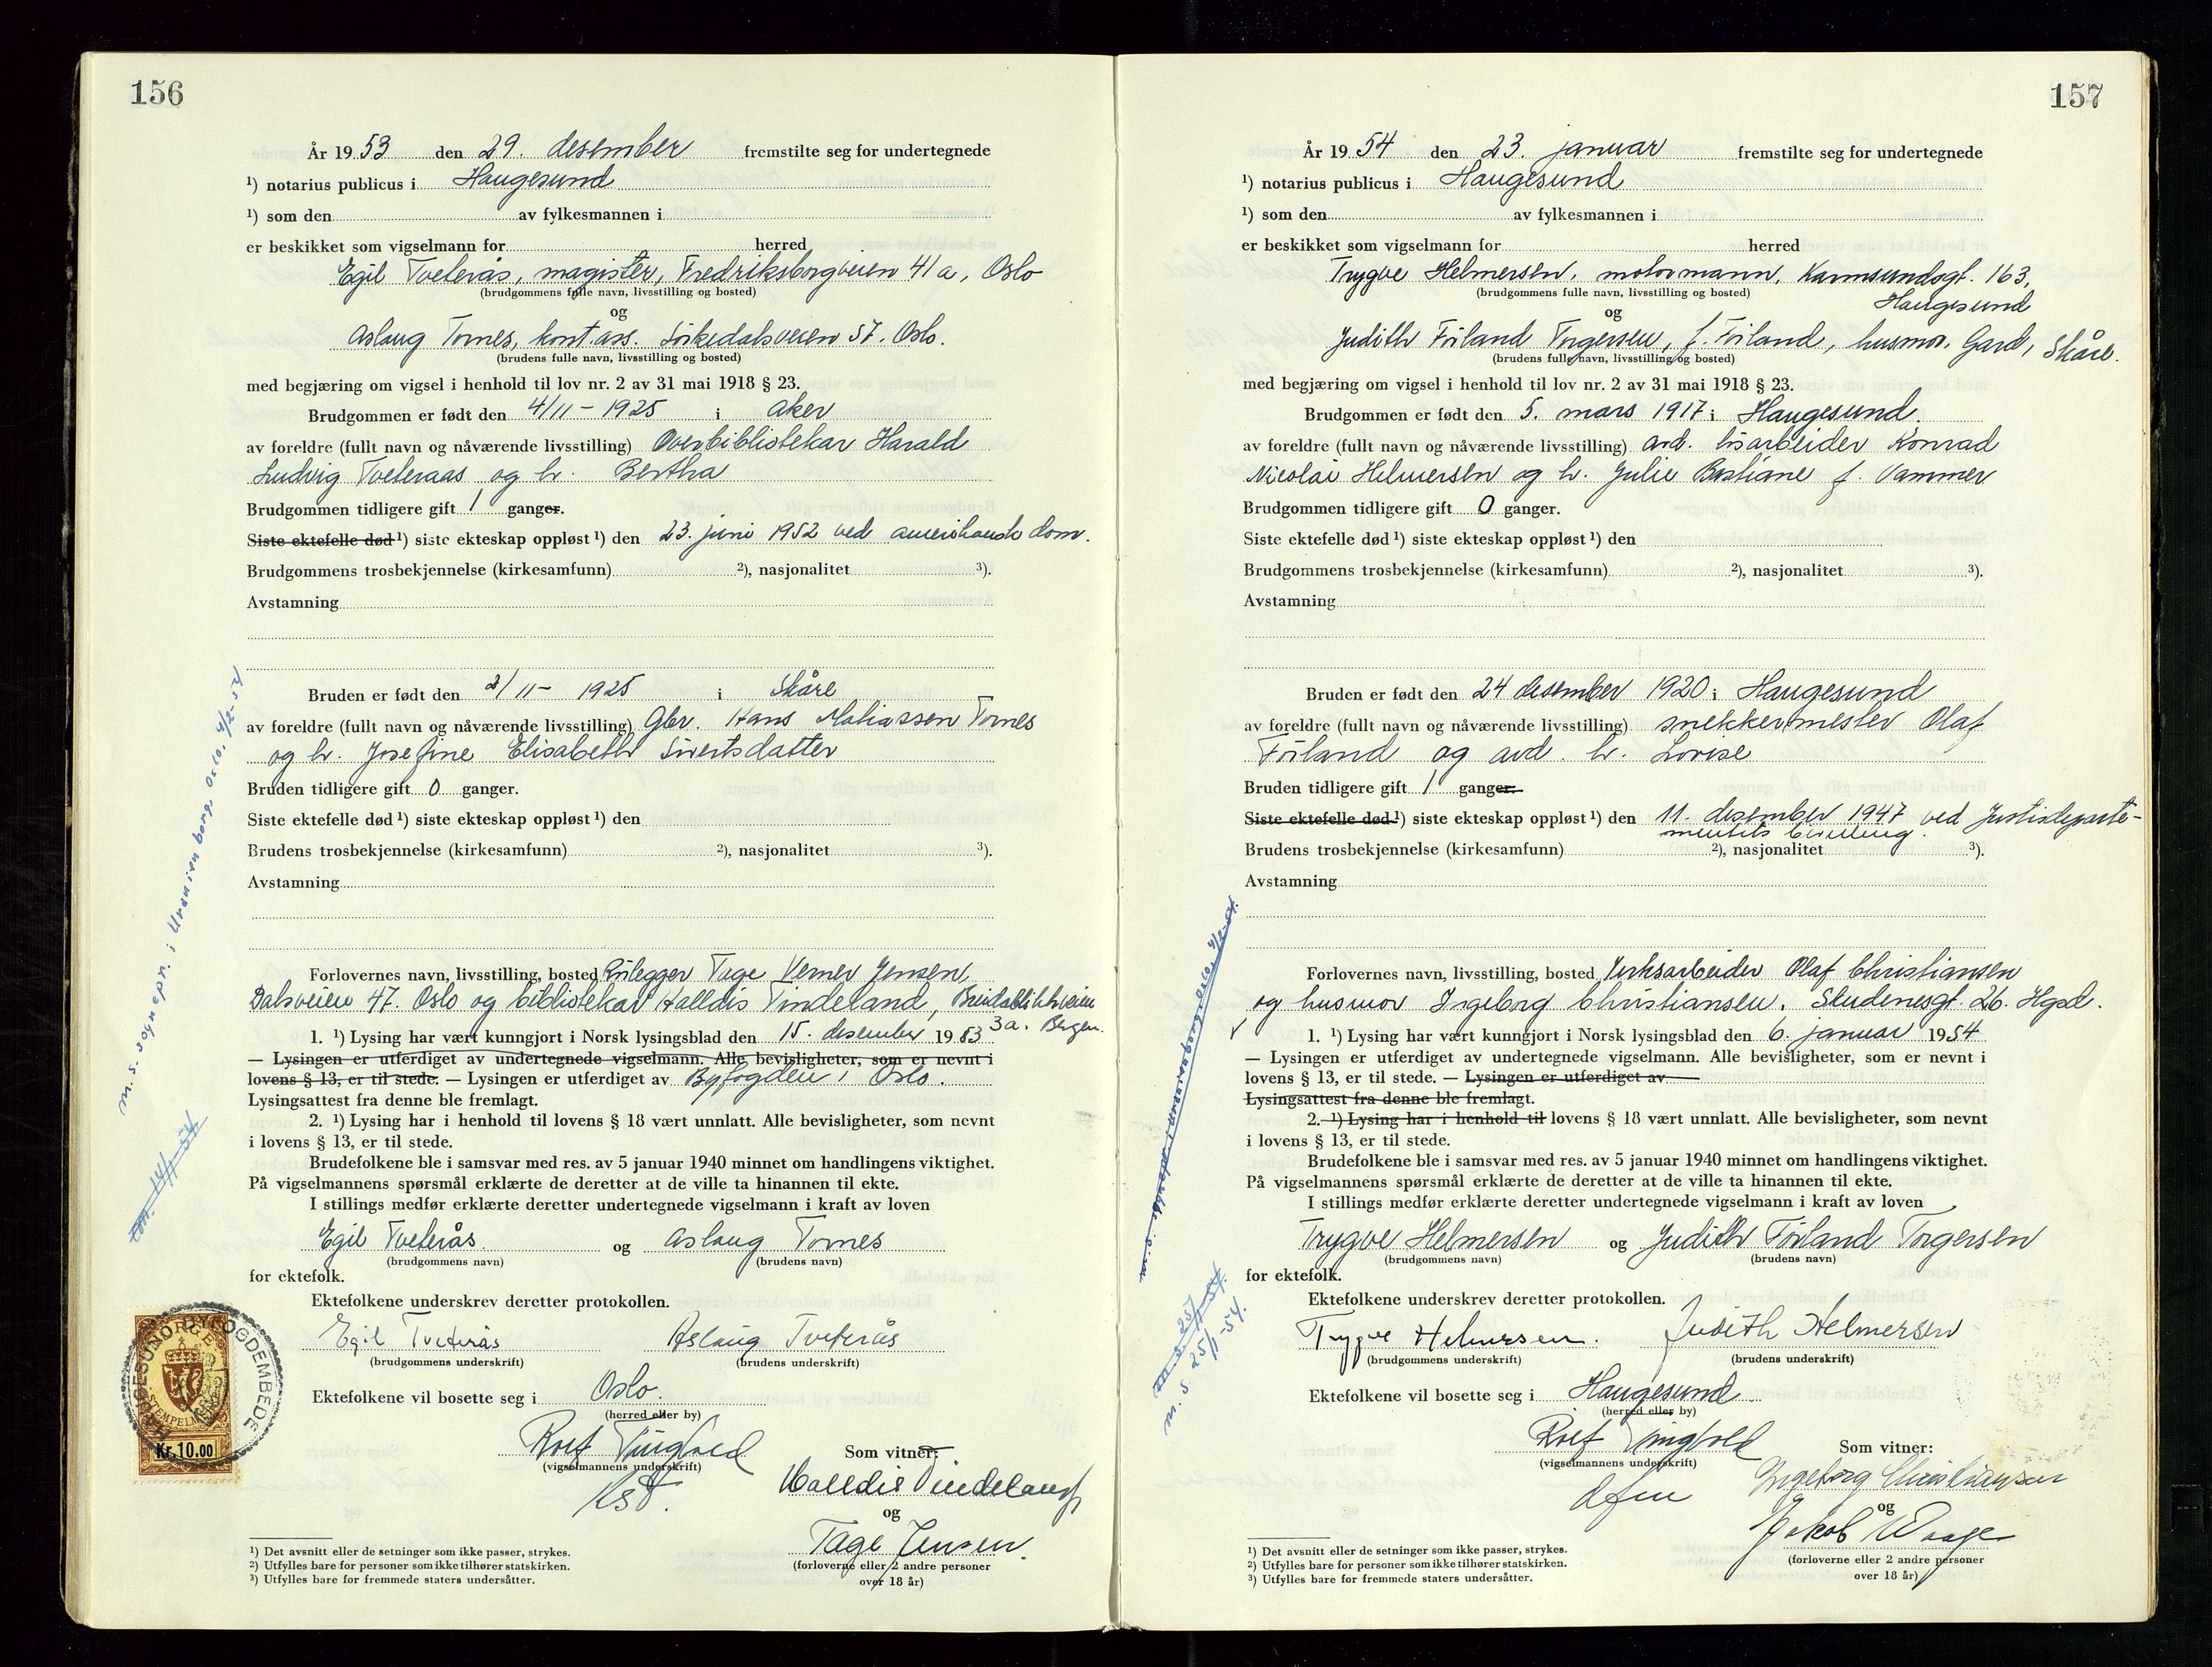 156
År 19 53 den 29. desember fremstilte seg for undertegnede
¹) notarius publicus i Haugesund
¹) som den av fylkesmannen i
er beskikket som vigselmann for herred
Egil Tveterås, magister, Fredriksborgveien 41a, Oslo
(brudgommens fulle navn, livsstilling og bosted)
og
Aslaug Tornes, kont.ass. Sørkedalsveien 57. Oslo.
(brudens fulle navn, livsstilling og bosted)
med begjæring om vigsel i henhold til lov nr. 2 av 31 mai 1918 § 23.
Brudgommen er født den 4/11 - 1925 i Aker
av foreldre (fullt navn og nåværende livsstilling) Overbibliotekar Harald
Ludvig Tveteraas og h. Bertha
Brudgommen tidligere gift 1 ganger.
Siste ektefelle død ¹) siste ekteskap oppløst ¹) den 23. juni 1952 ved amerikansk dom.
Brudgommens trosbekjennelse (kirkesamfunn) ²), nasjonalitet ³).
Avstamning
Bruden er født den 2/11 - 1925 i Skåre
av foreldre (fullt navn og nåværende livsstilling) Gbr. Hans Mathiassen Tornes
og h. Josefine Elisabeth Sivertsdatter
Bruden tidligere gift 0 ganger.
Siste ektefelle død ¹) siste ekteskap oppløst ¹) den
Brudens trosbekjennelse (kirkesamfunn) ²), nasjonalitet ³).
Avstamning
Forlovernes navn, livsstilling, bosted Rørlegger Tage Verner Jensen,
Dalsveien 47. Oslo og bibliotekar Halldis Vindeland, Breidablikkveien
3a. Bergen.
1. ¹) Lysing har vært kunngjort i Norsk lysingsblad den 15. desember 19 53
— Lysingen er utferdiget av undertegnede vigselmann. Alle bevisligheter, som er nevnt i
lovens § 13, er til stede. — Lysingen er utferdiget av Byfogden i Oslo.
Lysingsattest fra denne ble fremlagt.
2. ¹) Lysing har i henhold til lovens § 18 vært unnlatt. Alle bevisligheter, som nevnt
i lovens § 13, er til stede.
Brudefolkene ble i samsvar med res. av 5 januar 1940 minnet om handlingens viktighet.
På vigselmannens spørsmål erklærte de deretter at de ville ta hinannen til ekte.
I stillings medfør erklærte deretter undertegnede vigselmann i kraft av loven
Egil Tveterås og Aslaug Tornes
(brudgommens navn) (brudens navn)
for ektefolk.
Ektefolkene underskrev deretter protokollen.
Egil Tveterås Aslaug Tveterås
(brudgommens underskrift) (brudens underskrift)
Ektefolkene vil bosette seg i Oslo.
(herred eller by)
Rolf Tingvold
(vigselmannens underskrift)
Kst.
Som vitner:
Halldis Vindeland
og
Tage Jensen.
(forloverne eller 2 andre personer
over 18 år)
¹) Det avsnitt eller de setninger som ikke passer, strykes.
²) Utfylles bare for personer som ikke tilhører statskirken.
³) Utfylles bare for fremmede staters undersåtter.
m. s. sognepr. i Uranienborg, Oslo. 4/2-54
14/1-54
HAUGESUND BYFOGDEMBEDE
NORGE
STEMPELMERKE
Kr.10.00
157
År 19 54 den 23. januar fremstilte seg for undertegnede
¹) notarius publicus i Haugesund
¹) som den av fylkesmannen i
er beskikket som vigselmann for herred
Trygve Helmersen, motormann, Karmsundsgt. 163,
Haugesund
(brudgommens fulle navn, livsstilling og bosted)
og
Judith Førland Torgersen, f. Førland, husmor, Gard, Skåre.
(brudens fulle navn, livsstilling og bosted)
med begjæring om vigsel i henhold til lov nr. 2 av 31 mai 1918 § 23.
Brudgommen er født den 5. mars 1917 i Haugesund.
av foreldre (fullt navn og nåværende livsstilling) avd. løsarbeider Konrad
Nicolai Helmersen og h. Julie Bastiane f. Vammer
Brudgommen tidligere gift 0 ganger.
Siste ektefelle død ¹) siste ekteskap oppløst ¹) den
Brudgommens trosbekjennelse (kirkesamfunn) ²), nasjonalitet ³).
Avstamning
Bruden er født den 24 desember 1920 i Haugesund
av foreldre (fullt navn og nåværende livsstilling) snekkermester Olaf
Førland og avd. h. Lovise
Bruden tidligere gift 1 ganger.
Siste ektefelle død ¹) siste ekteskap oppløst ¹) den 11. desember 1947 ved Justisdeparte-
mentets bevilling.
Brudens trosbekjennelse (kirkesamfunn) ²), nasjonalitet ³).
Avstamning
Forlovernes navn, livsstilling, bosted Verksarbeider Olaf Christiansen
og husmor Ingeborg Christiansen. Skudenesgt. 26. Hgsd.
1. ¹) Lysing har vært kunngjort i Norsk lysingsblad den 6. januar 1954
— Lysingen er utferdiget av undertegnede vigselmann. Alle bevisligheter, som er nevnt i
lovens § 13, er til stede. — Lysingen er utferdiget av
Lysingsattest fra denne ble fremlagt.
2. ¹) Lysing har i henhold til lovens § 18 vært unnlatt. Alle bevisligheter, som nevnt
i lovens § 13, er til stede.
Brudefolkene ble i samsvar med res. av 5 januar 1940 minnet om handlingens viktighet.
På vigselmannens spørsmål erklærte de deretter at de ville ta hinannen til ekte.
I stillings medfør erklærte deretter undertegnede vigselmann i kraft av loven
Trygve Helmersen og Judith Førland Torgersen
(brudgommens navn) (brudens navn)
for ektefolk.
Ektefolkene underskrev deretter protokollen.
Trygve Helmersen. Judith Helmersen
(brudgommens underskrift) (brudens underskrift)
Ektefolkene vil bosette seg i Haugesund
(herred eller by)
Rolf Tingvold
(vigselmannens underskrift)
Som vitner:
Ingeborg Christiansen
og
Jakob Waage
(forloverne eller 2 andre personer
over 18 år)
¹) Det avsnitt eller de setninger som ikke passer, strykes.
²) Utfylles bare for personer som ikke tilhører statskirken.
³) Utfylles bare for fremmede staters undersåtter.
m. s. sognepr. i Uranienborg, Oslo. 4/2-54.
m. s. 25/1-54.